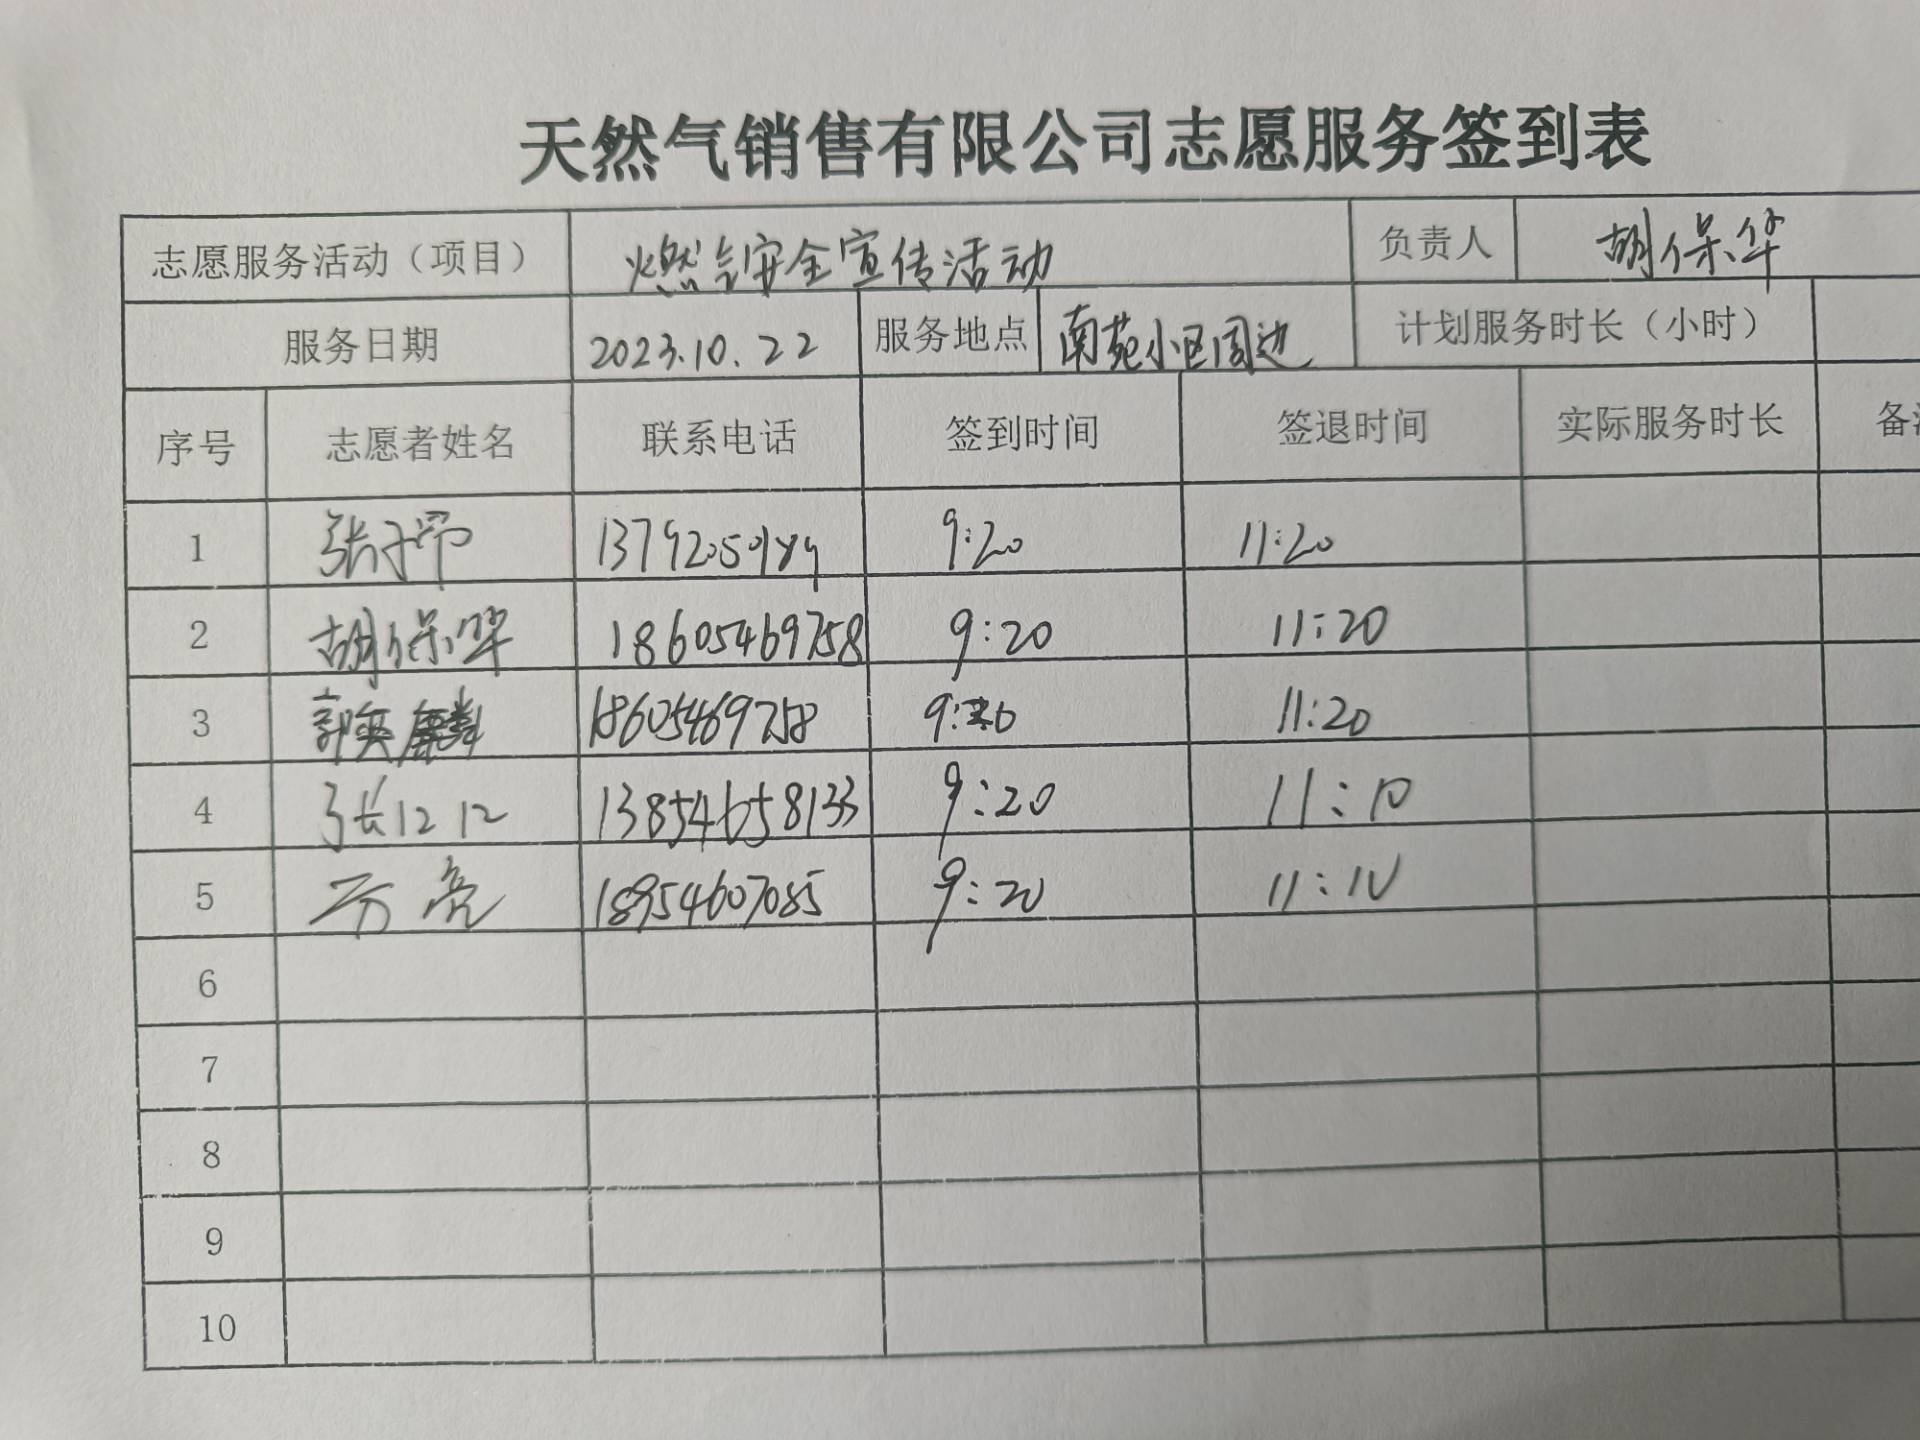 天然气销售有限公司志愿服务签到表
志愿服务活动（项目） 燃气安全宣传活动 负责人 胡保华
服务日期 2023.10.22 服务地点 南苑小区周边 计划服务时长（小时）
序号 志愿者姓名 联系电话 签到时间 签退时间 实际服务时长 备
1 9:20 11:20
2 胡保华 18605469758 9:20 11:20
3 18605469758 11:20
4 13854658133 9:20 11:10
5 18954607085 9:20 11:10
6
7
8
9
10